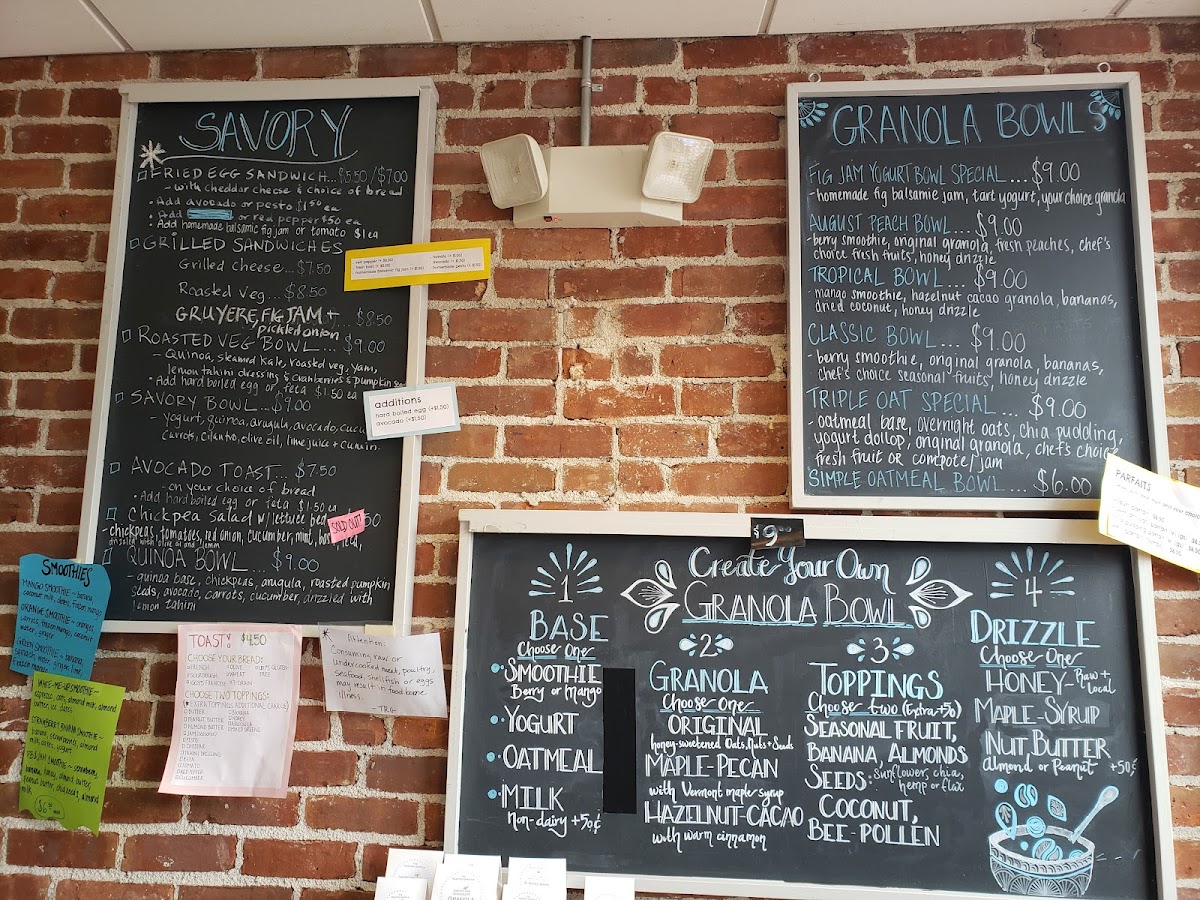 SAVORY
FRIED EGG SANDWICH...$5.50/$7.00
- with cheddar cheese & choice of bread
• Add avocado or pesto $1.50 ea
• Add or red pepper $.50 ea
• Add homemade balsamic fig jam or tomato $1 ea
GRILLED SANDWICHES
Grilled cheese...$7.50
Roasted veg...$8.50
GRUYERE, FIG JAM +
pickled onion ...$8.50
ROASTED VEG BOWL...$9.00
- Quinoa, steamed kale, roasted veg, yam,
lemon tahini dressing & cranberries & pumpkin
• Add hard boiled egg or feta $1.50 ea
SAVORY BOWL...$9.00
- yogurt, quinoa, arugula, avocado,
carrots, cilantro, olive oil, lime juice + cumin
AVOCADO TOAST...$7.50
- on your choice of bread
• Add hard boiled egg or feta $1.50 ea
Chickpea Salad w/lettuce bed
SOLD OUT!
- chickpeas, tomatoes, red onion, cucumber, mint,
drizzled with olive oil and lemon
QUINOA BOWL...$9.00
- quinoa base, chickpeas, arugula, roasted pumpkin
seeds, avocado, carrots, cucumber, drizzled with
lemon tahini
additions
hard boiled egg (+$1.50)
avocado (+$1.50)
GRANOLA BOWLS
FIG JAM YOGURT BOWL SPECIAL...$9.00
- homemade fig balsamic jam, tart yogurt, your choice granola
AUGUST PEACH BOWL...$9.00
- berry smoothie, original granola, fresh peaches, chef's
choice fresh fruits, honey drizzle
TROPICAL BOWL...$9.00
- mango smoothie, hazelnut cacao granola, bananas,
dried coconut, honey drizzle
CLASSIC BOWL...$9.00
- berry smoothie, original granola, bananas,
chef's choice seasonal fruits, honey drizzle
TRIPLE OAT SPECIAL...$9.00
- oatmeal base, overnight oats, chia pudding,
yogurt dollop, original granola, chef's choice
fresh fruit OR compote/jam
SIMPLE OATMEAL BOWL...$6.00
PARFAITS
$9.00
Create Your Own
GRANOLA BOWL
1
BASE
Choose One
• SMOOTHIE
Berry or Mango
• YOGURT
• OATMEAL
• MILK
Non-dairy +50¢
2
GRANOLA
Choose One
ORIGINAL
honey-sweetened Oats, Nuts + Seeds
MAPLE-PECAN
with Vermont maple syrup
HAZELNUT-CACAO
with warm cinnamon
3
TOPPINGS
Choose two (Extra +50)
SEASONAL FRUIT,
BANANA, ALMONDS
SEEDS: sunflower, chia,
hemp or flax
COCONUT,
BEE-POLLEN
4
DRIZZLE
Choose One
HONEY- Raw + Local
MAPLE-SYRUP
NUT BUTTER
Almond or Peanut +50¢
SMOOTHIES
MANGO SMOOTHIE ~ banana
coconut milk, dates, frozen mango
ORANGE SMOOTHIE ~ oranges
carrots, frozen mango, coconut
water, ginger
GREEN SMOOTHIE ~ banana,
WAKE-ME-UP SMOOTHIE ~
espresso, oats, almond milk, almond
butter, ice, dates
STRAWBERRY BANANA SMOOTHIE ~
banana, strawberries, almond
milk, dates, yogurt
PB & JAM SMOOTHIE ~ strawberry,
banana, honey, almond butter,
peanut butter, chia seeds, almond
milk
TOAST $4.50
CHOOSE YOUR BREAD:
CHOOSE TWO TOPPINGS:
Attention:
Consuming raw or
undercooked meat, poultry,
seafood, shellfish or eggs
may result in food borne
illness.
- TRG -